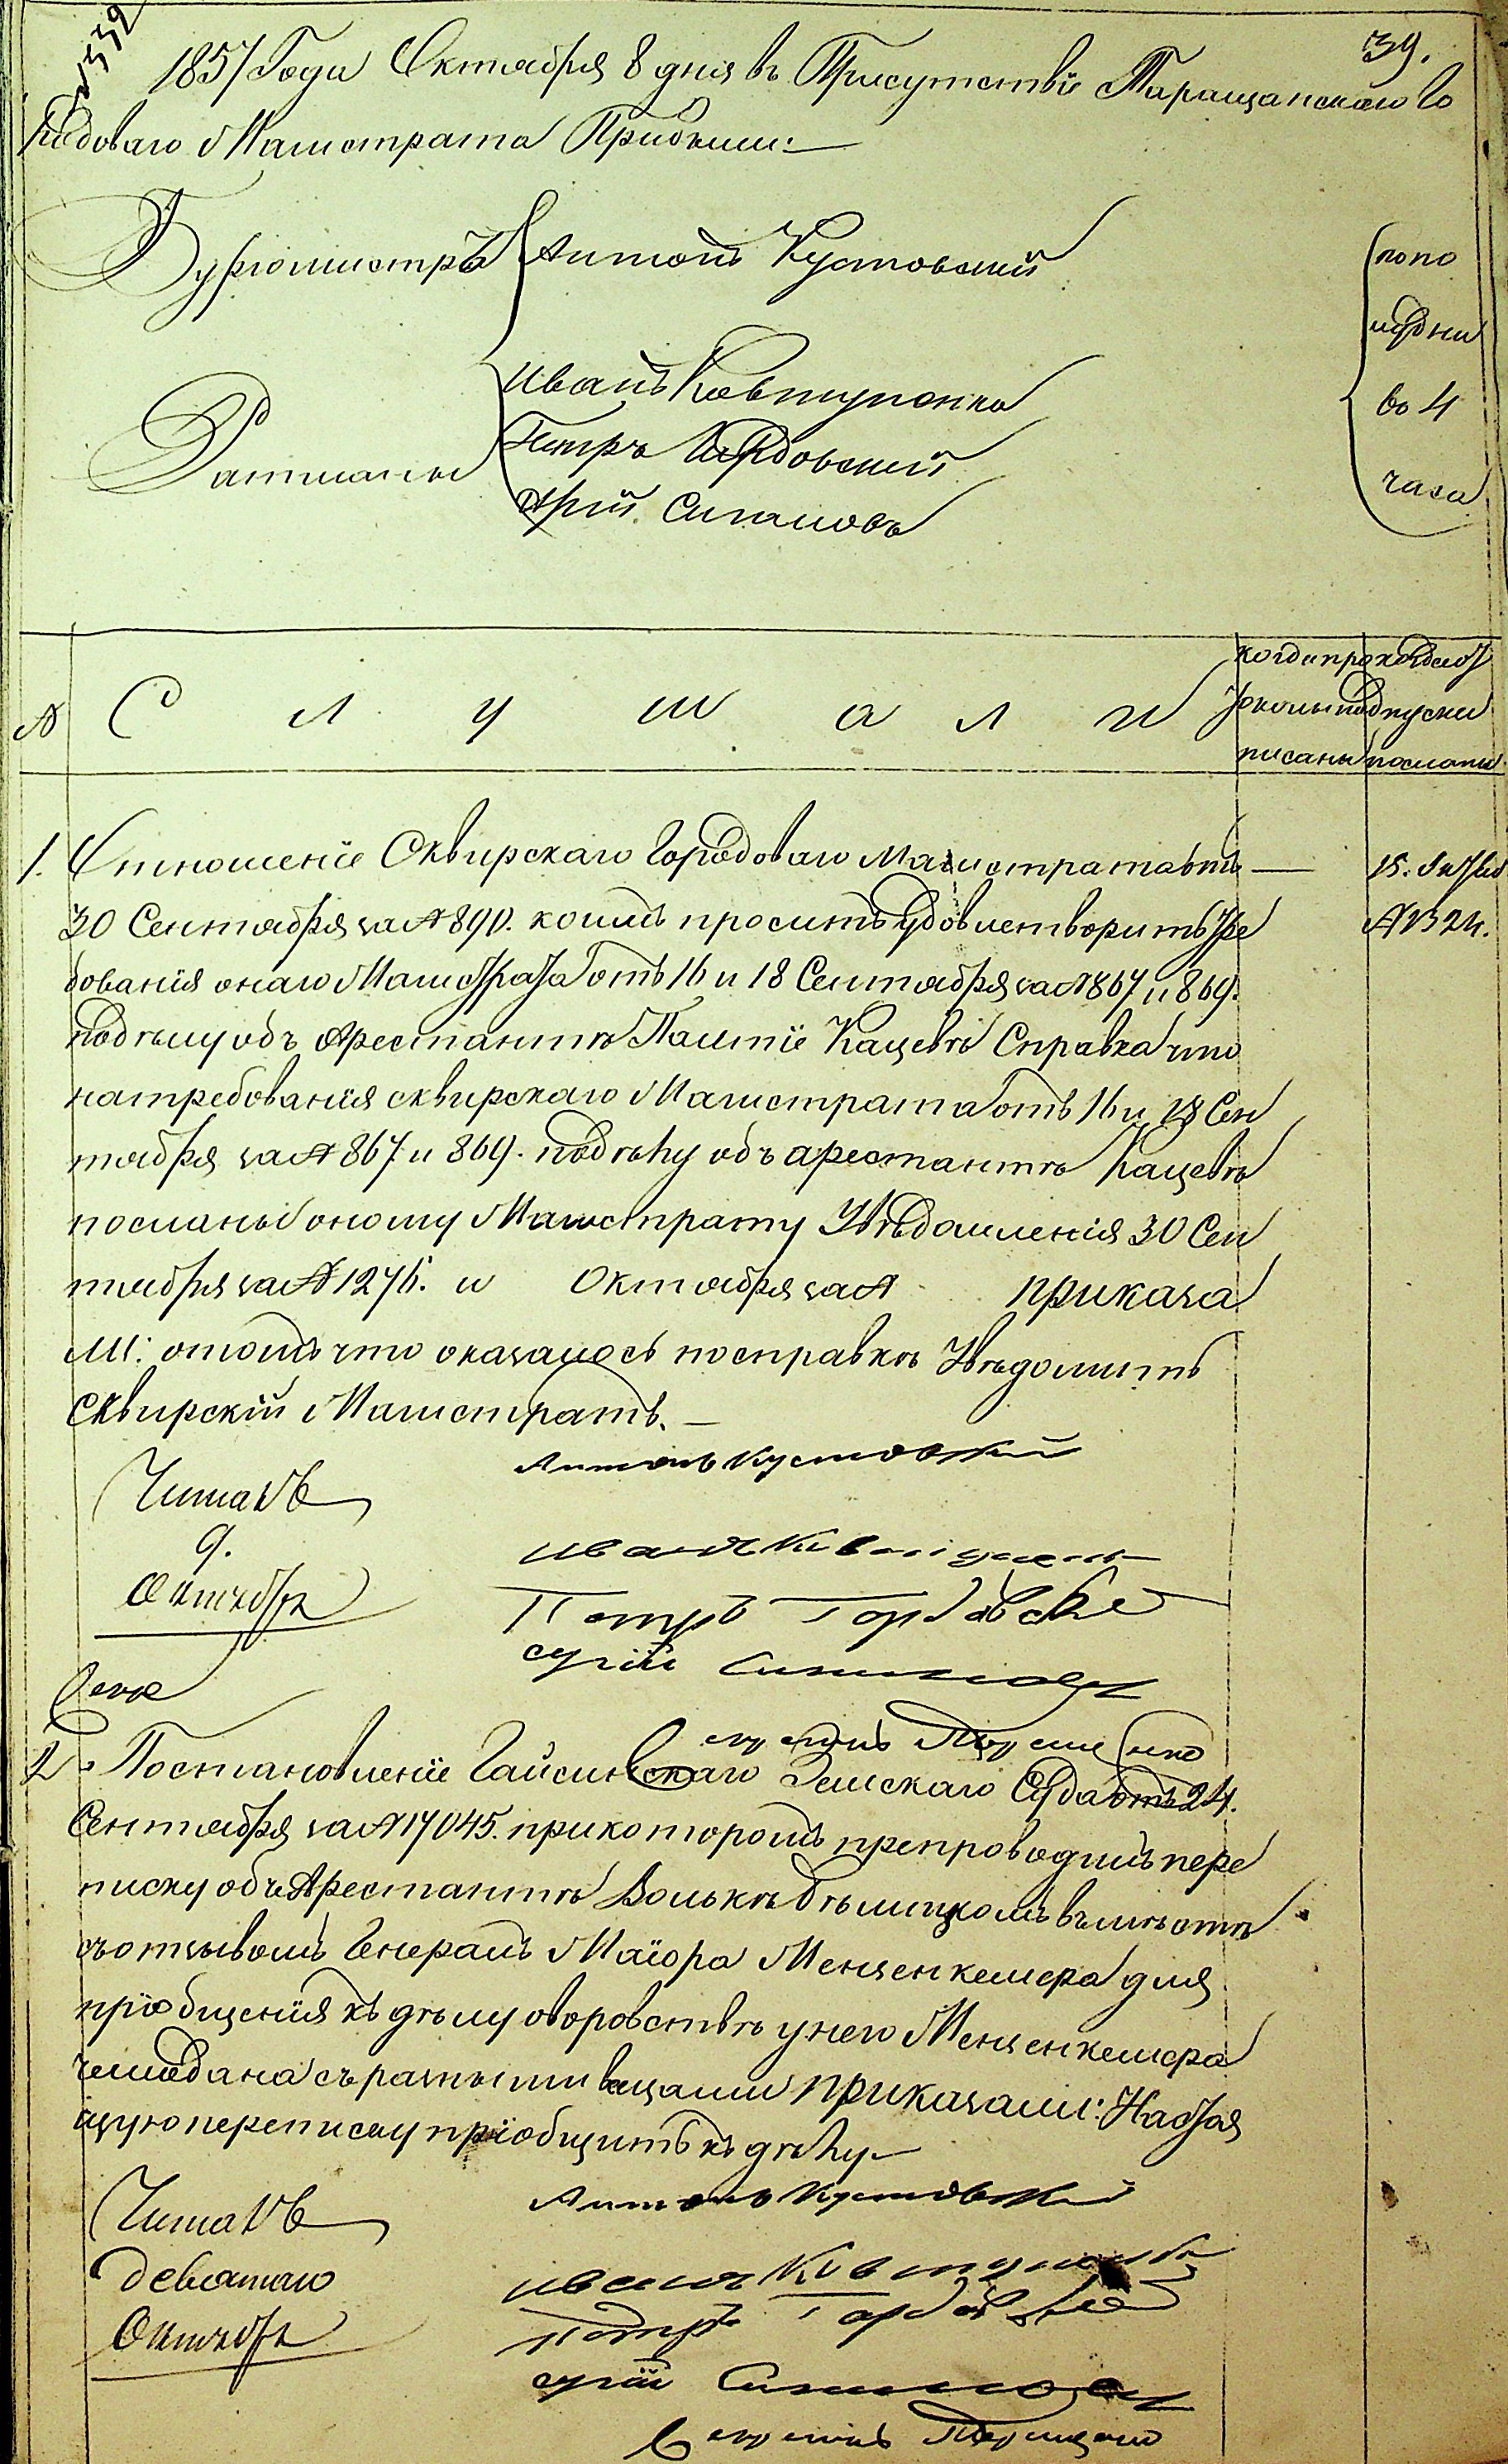 № 332
39.
1857 Года Октября 8 дня въ Присутствіи Таращанскаго Го
родоваго Магистрата Прибыли:
Бургомистръ Антонъ Кустовскій
Ратманы
Иванъ Ковтуненко
Петръ Гордовскій
Сигаловъ
попо
лудни
во 4
часа
№ С л у ш а л и
когда про токолы под писаны
когда от пуски посланы
1. Отношеніе Сквирскаго Городоваго Магистрата отъ
30 Сентября за № 890. коимъ проситъ удовлетворить Тре
бованія онаго Магистрата отъ 16 и 18 Сентября за № 867 и 869.
по дѣлу объ Арестантѣ Кацевѣ Справка что
на требованія сквирскаго Магистрата отъ 16 и 18 Сен
тября за № 867 и 869. по дѣлу объ арестантѣ Кацевѣ
посланы оному Магистрату Увѣдомленія 30 Сен
тября за № 1276. и Октября за № приказа
ли: о томъ что оказалось по справкѣ Увѣдомить
Сквирскій Магистратъ.
15. Октяб
№ 1324.
Читалъ
9.
Октября
Антонъ Кустовскій
Иванъ Ковтуненко
Петръ Гордовскій
2. Постановленіе Гайсинскаго Земскаго Суда отъ 24.
Сентября за № 17045. при которомъ препроводилъ пере
писку объ Арестантѣ Волькѣ Бѣлицкомъ вмѣстѣ
съ отзывомъ Генералъ Маіора Менценкемера для
пріобщенія къ дѣлу о воровствѣ у него Менценкемера
чемодана съ разными вещами приказали: Настоя
щую переписку пріобщить къ дѣлу
Читалъ
девятаго
Октября
Антонъ Кустовскій
Иванъ Ковтуненко
Петръ Гордовскій